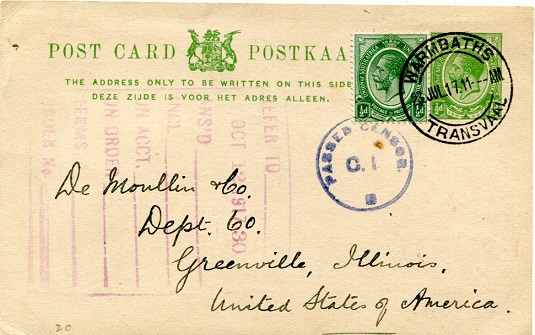 POST CARD POSTKAA
THE ADDRESS ONLY TO BE WRITTEN ON THIS SIDE
DEZE ZIJDE IS VOOR HET ADRES ALLEEN.
½d
½d
WARMBATHS
JUL 17. 11- AM
TRANSVAAL
PASSED CENSOR
C. I.
REFER TO
OCT
ANS'D
ACCT.
ORDER
De Moullin & Co.
Dept. 60.
Greenville, Illinois,
United States of America.
20